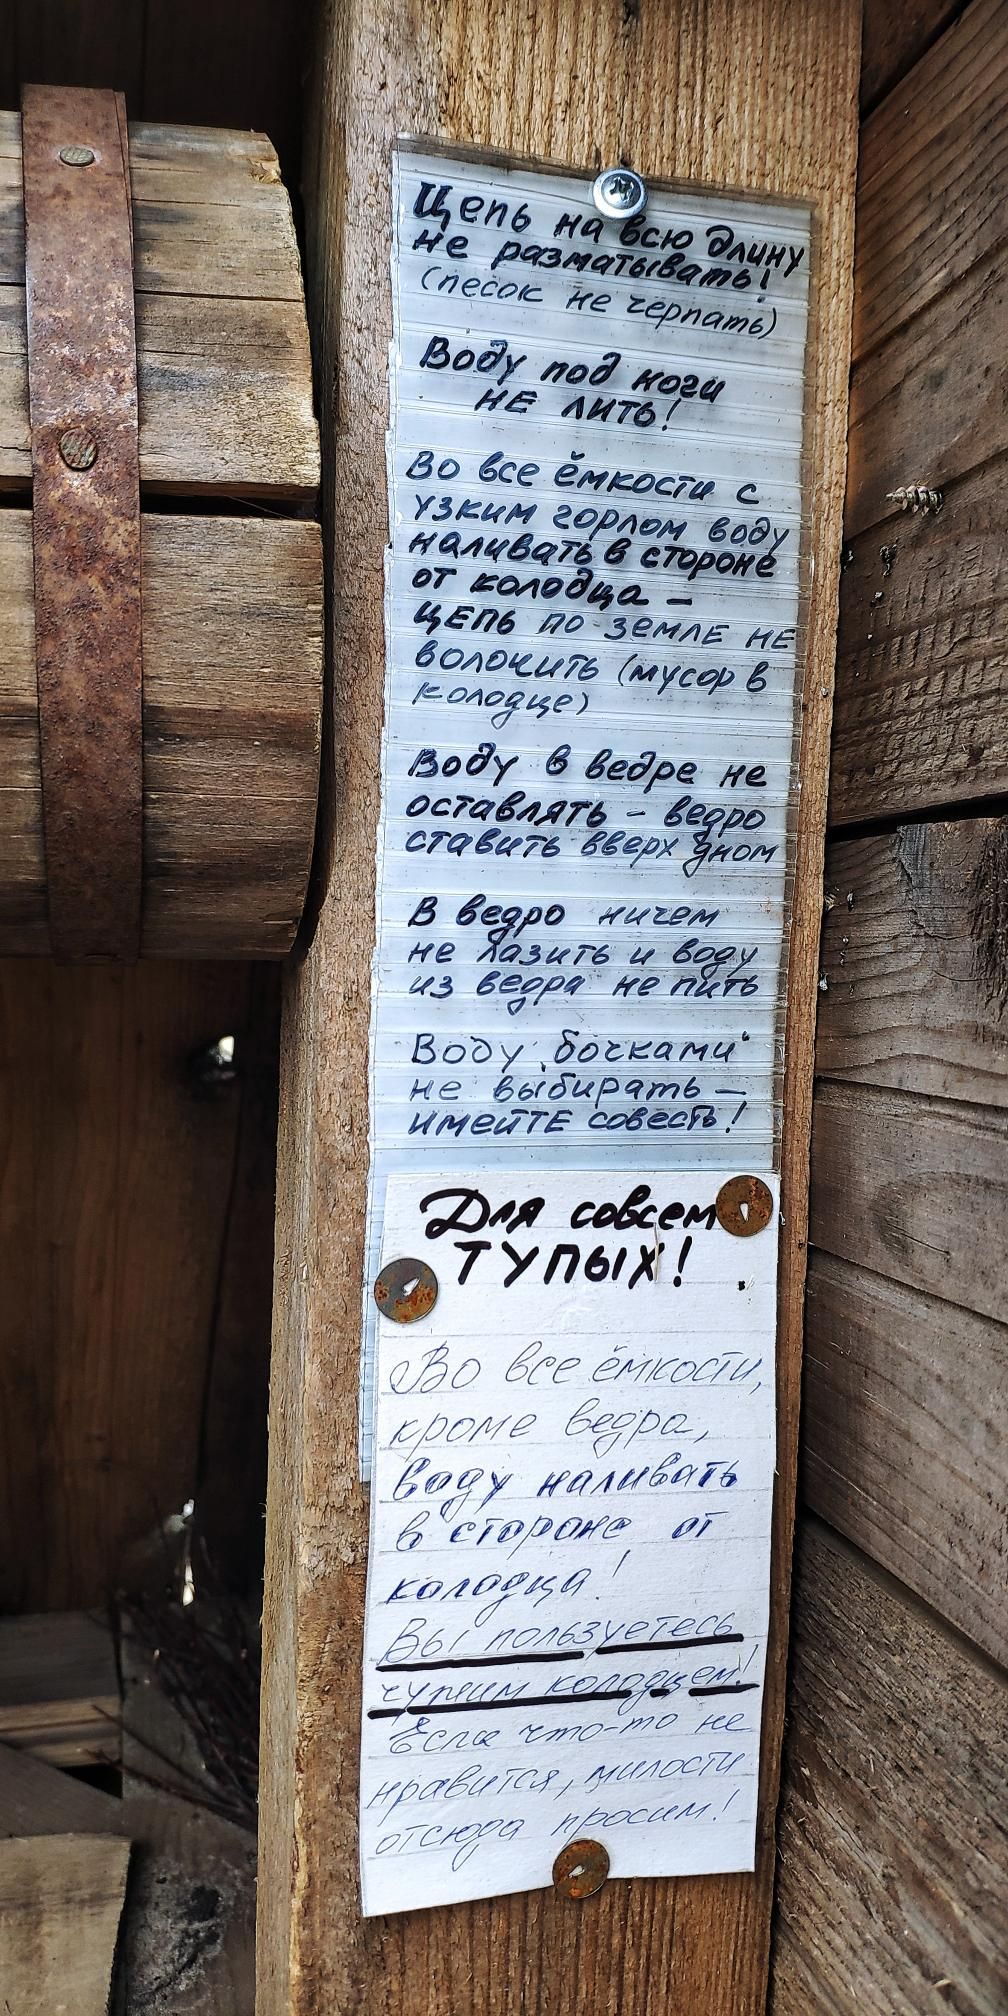 Цепь на всю длину
не разматывать!
(песок не черпать)
Воду под ноги
НЕ ЛИТЬ!
Во все ёмкости с
узким горлом воду
наливать в стороне
от колодца –
ЦЕПЬ ПО ЗЕМЛЕ НЕ
волочить (мусор в
колодце)
Воду в ведре не
оставлять – ведро
ставить вверх дном
В ведро ничем
не лазить и воду
из ведра не пить
Воду „бочками“
не выбирать –
имейте совесть!
Для совсем
ТУПЫХ!
Во все ёмкости,
кроме ведра,
воду наливать
в стороне от
колодца!
Вы пользуетесь
чужим колодцем!
Если что-то не
нравится, милости
отсюда просим!